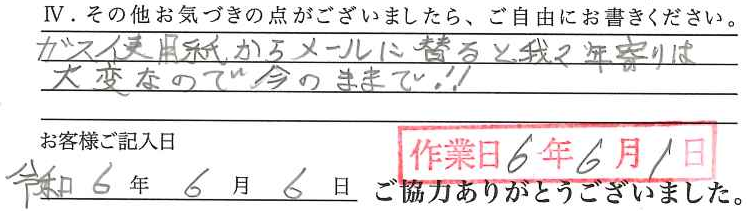 Ⅳ．その他お気づきの点がございましたら、ご自由にお書きください。
ガス使用紙からメールに替ると我々年寄りは
大変なので今のままで!!
お客様ご記入日
作業日6年6月1日
令和6年6月6日
ご協力ありがとうございました。